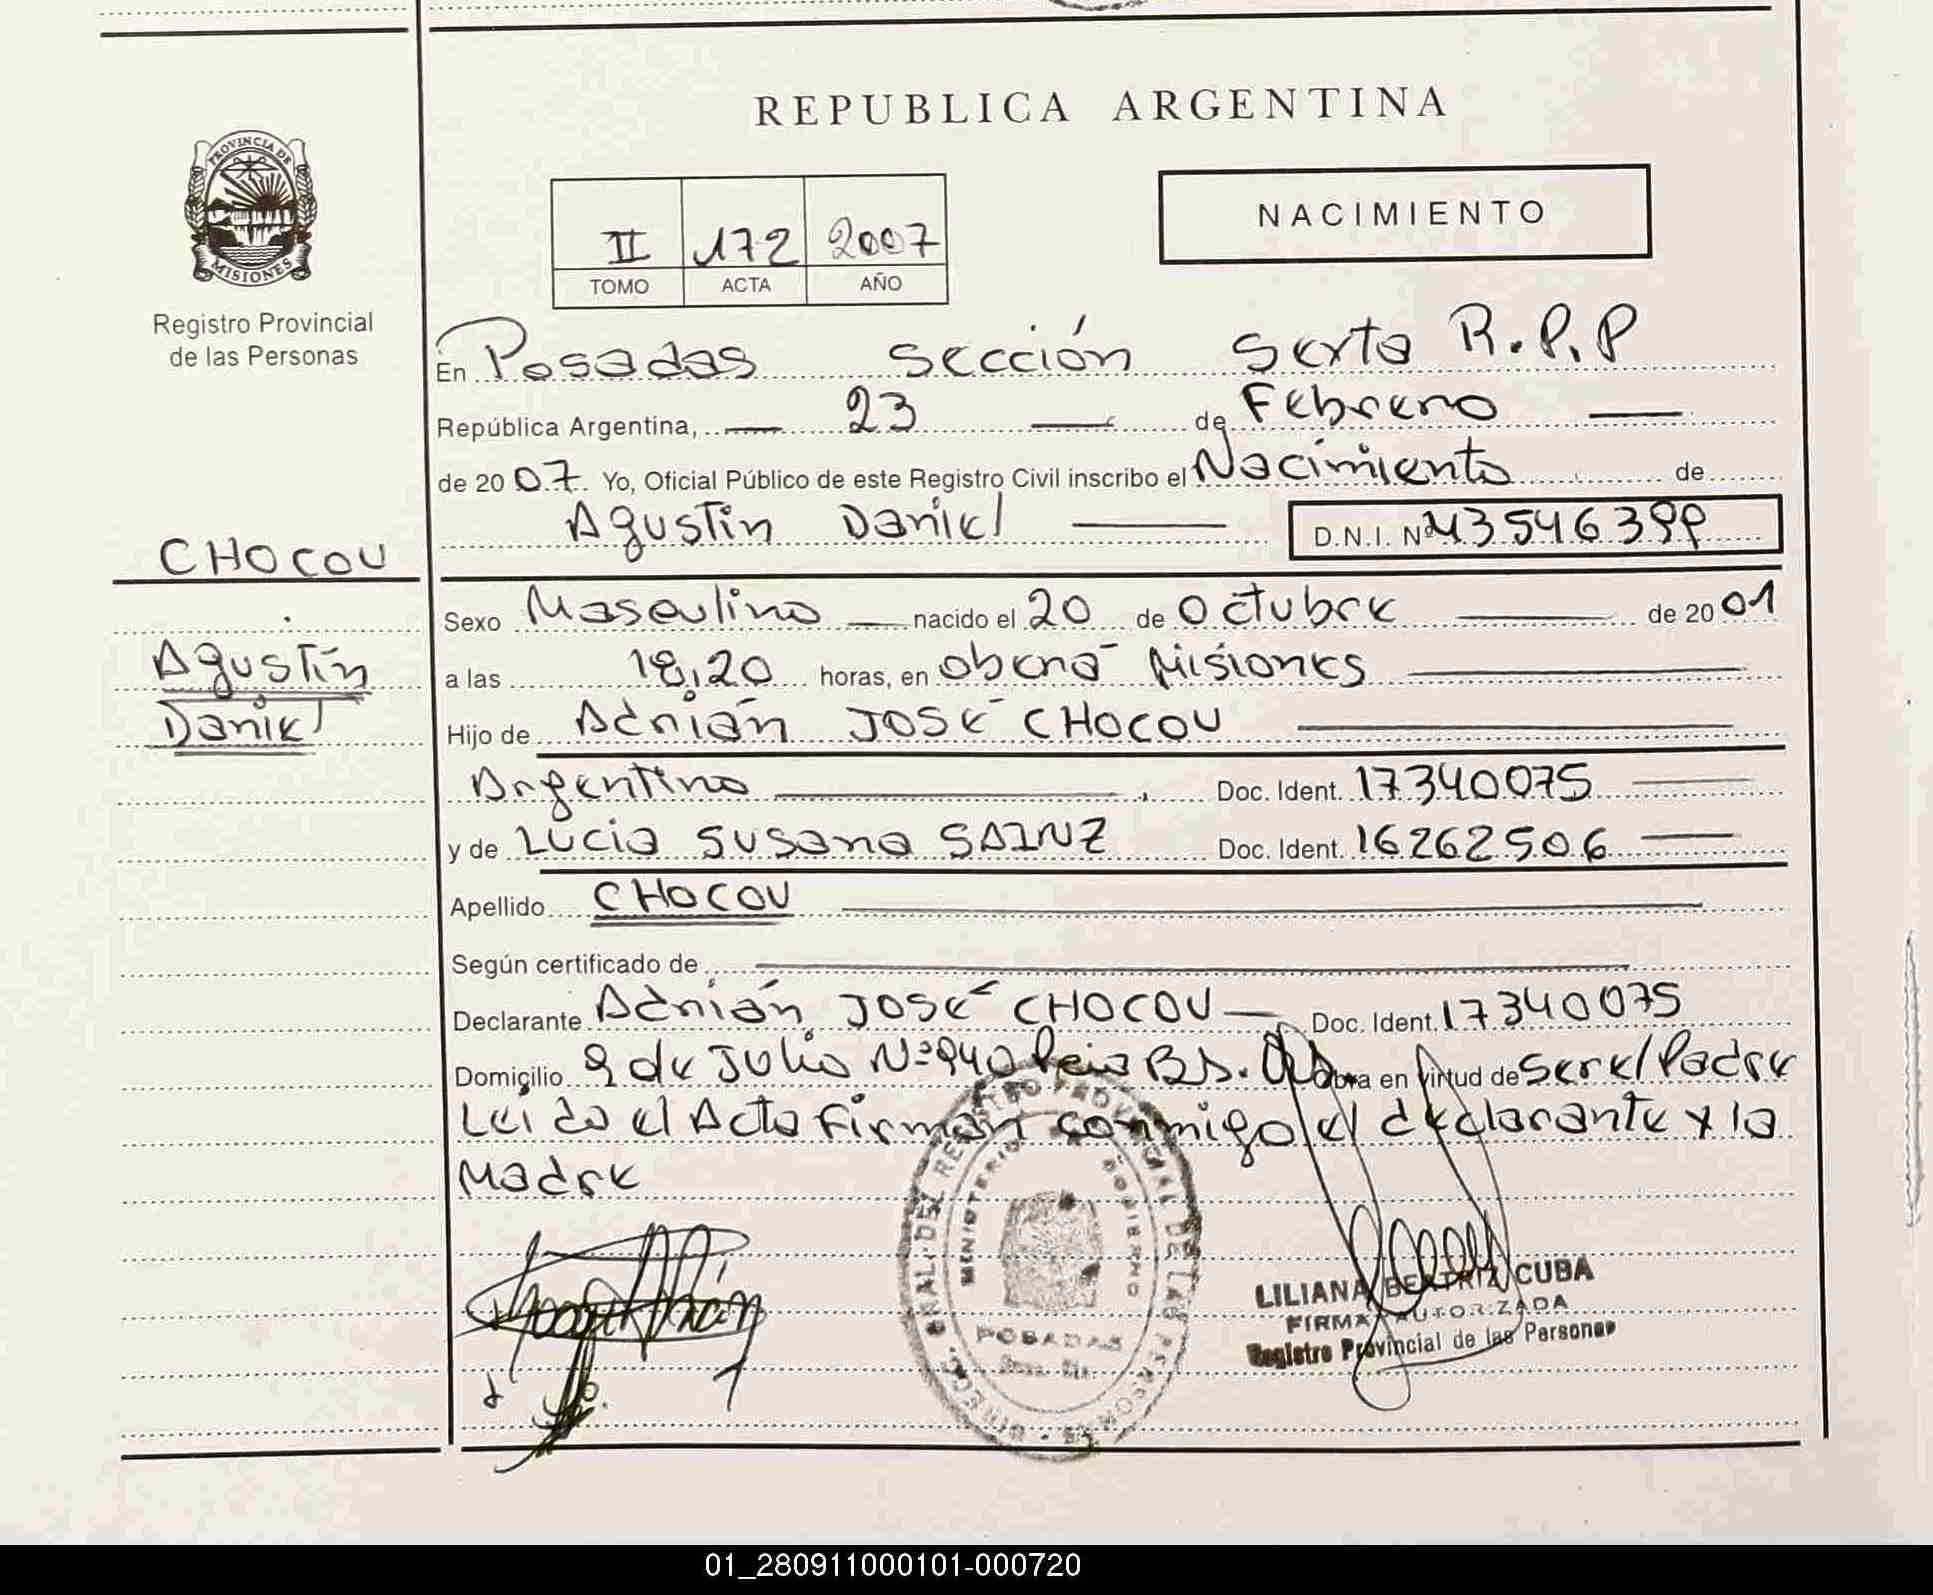 REPUBLICA ARGENTINA
PROVINCIA DE
MISIONES
Registro Provincial
de las Personas
NACIMIENTO
II 172 2007
TOMO ACTA AÑO
En Posadas Sección Sexta R.P.P
República Argentina, — 23 — de Febrero —
de 2007 Yo, Oficial Público de este Registro Civil inscribo el Nacimiento de
Agustín Daniel — D.N.I. Nº 43546399
CHOCOU
Agustín
Daniel
Sexo Masculino — nacido el 20 de Octubre — de 2001
a las 18,20 horas, en Oberá Misiones —
Hijo de Adrián José CHOCOU —
Argentino — Doc. Ident. 17340075 —
y de Lucia Susana SAINZ Doc. Ident. 16262506 —
Apellido CHOCOU —
Según certificado de —
Declarante Adrián José CHOCOU — Doc. Ident. 17340075
Domicilio 9 de Julio Nº 940 Bs. As Obra en virtud de Ser el Padre
Leído el Acta Firman conmigo el declarante y la
Madre
DIREC. GRAL. DEL REGISTRO PROVINCIAL DE LAS PERSONAS
MINISTERIO DE GOBIERNO
POSADAS
LILIANA BEATRIZ CUBA
FIRMA AUTORIZADA
Registro Provincial de las Personas
01_280911000101-000720